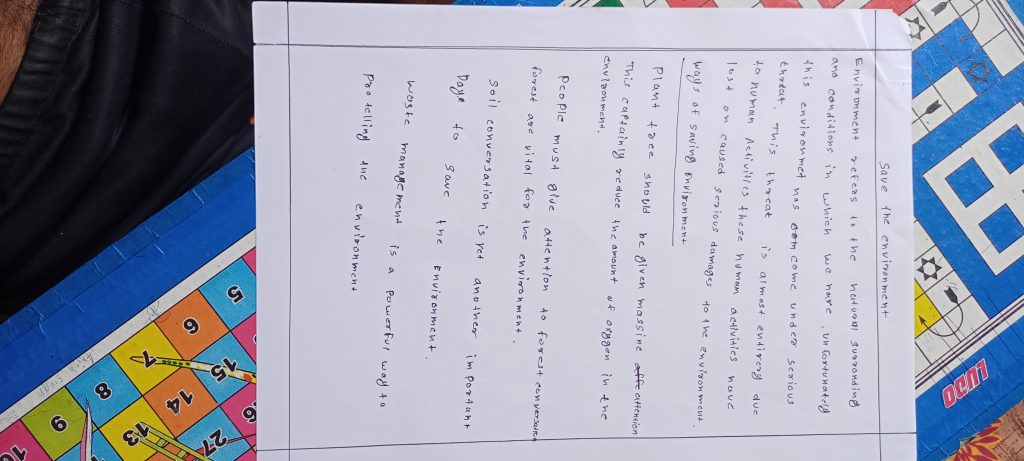 save the environment
Environment refers to the natural surronding
and conditions in which we nare. unfortunately
this environmet has come under serious
threat. This threat is almost entirery due
to human Activities these human activities have
lost on caused serious damages to the environment.
ways of saving Environment
Plant tree should be given massine attention
This captainly reduce the amount of oxygen in the
environment.
People must give attention to forest conversation
forest are vital for the environment.
Soil conversation is yet another important
Daye to save the Environment.
Waste management is a powerful way to
protelling the environment
LUDO
5
6
7
8
9
15
14
13
27